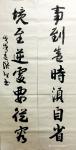 事到盛時須自省
境至逆處要從容